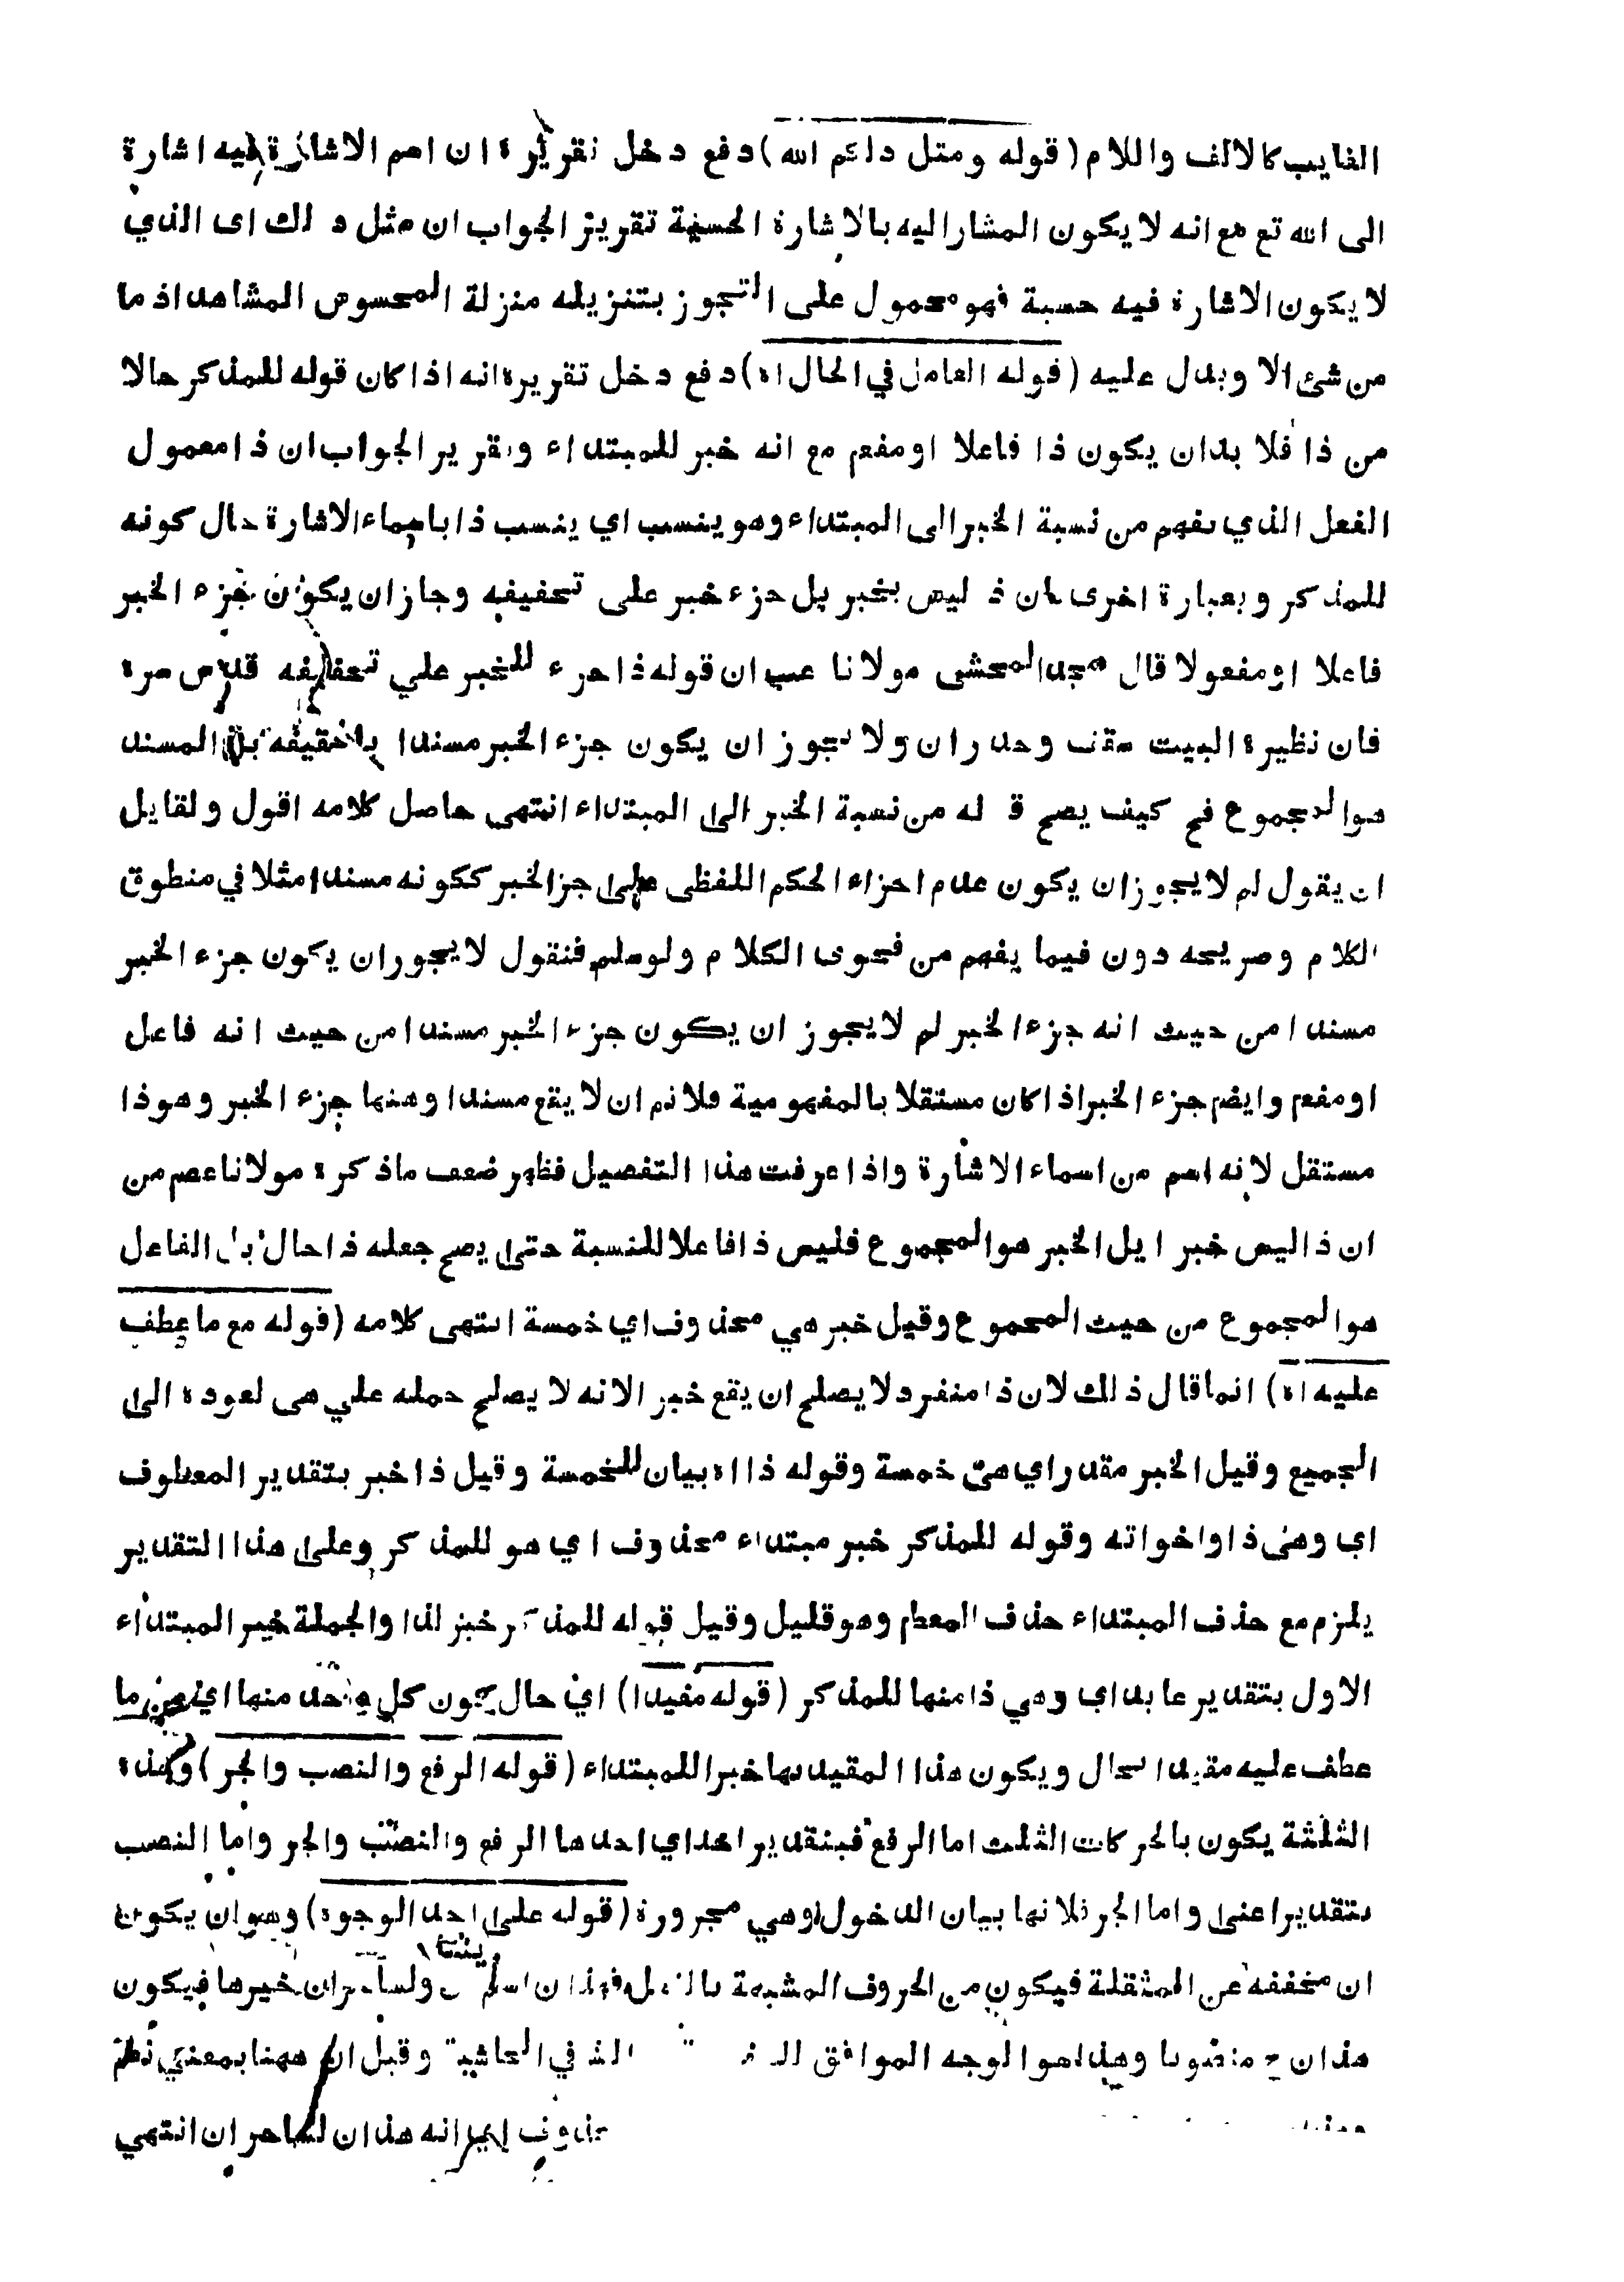 الغايب كالالف واللام (قوله ومثل ذلكم الله) دفع دخل تقريره ان اسم الاشارة فيه اشارة
الى الله تع مع انه لا يكون المشار اليه بالاشارة الحسية تقرير الجواب ان مثل ذلك اى الذي
لا يكون الاشارة فيه حسية فهو محمول على التجوز بتنزيله منزلة المحسوس المشاهد اذ ما
من شئ الا ويدل عليه (قوله العامل في الحال اه) دفع دخل تقريره انه اذا كان قوله للمذكر حالا
من ذا فلا بد ان يكون ذا فاعلا او مفعم مع انه خبر للمبتداء وتقرير الجواب ان ذا معمول
الفعل الذي يفهم من نسبة الخبر الى المبتداء وهو ينسب اي ينسب ذا باسماء الاشارة حال كونه
للمذكر وبعبارة اخرى ان ذ ليس بخبر بل جزء خبر على تحقيقه وجاز ان يكون جزء الخبر
فاعلا او مفعولا قال المحشى مولانا ان قوله ذا جزء للخبر علي تحقيقه مره
فان نظيره البيت سقف وجدران ولا يجوز ان يكون جزء الخبر مسندا بل المسند
هو المجموع فح كيف يصح ق له من نسبة الخبر الى المبتداء انتهى حاصل كلامه اقول ولقايل
ان يقول لم لا يجوز ان يكون عدم اجزاء الحكم اللفظى على جز الخبر ككونه مسندا مثلا في منطوق
الكلام وصريحه دون فيما يفهم من فحوى الكلام ولو سلم فنقول لا يجوز ان يكون جزء الخبر
مسندا من حيث انه جزء الخبر لم لا يجوز ان يكون جزء الخبر مسندا من حيث انه فاعل
او مفعم وايضم جزء الخبر اذا كان مستقلا بالمفهومية فلا نم ان لا يقع مسندا وهنها جزء الخبر وهو ذا
مستقل لانه اسم من اسماء الاشارة واذا عرفت هذا التفصيل فظهر ضعف ما ذكره مولانا عصم من
ان ذا ليس خبرا بل الخبر هو المجموع فليس ذا فاعلا للنسبة حتى يصح جعله ذا حال بل الفاعل
هو المجموع من حيث المجموع وقيل خبر هي محذوف اي خمسة انتهى كلامه (قوله مع ما عطف
عليه اه) انما قال ذلك لان ذا منفرد لا يصلح ان يقع خبرا لانه لا يصلح حمله علي هى لعوده الى
الجميع وقيل الخبر مقدر اي هى خمسة وقوله ذا اه بيان للخمسة وقيل ذا خبر بتقدير المعطوف
اي وهى ذا واخواته وقوله للمذكر خبر مبتداء محذوف اي هو للمذكر وعلى هذا التقدير
يلزم مع حذف المبتداء حذف المعطم وهو قليل وقيل قوله للمذكر خبر لذا والجملة خبر المبتداء
الاول بتقدير عايد اي وهي ذا منها للمذكر (قوله مفيدا) اي حال كون كل واحد منها اي عن ما
عطف عليه مقيدا بحال ويكون هذا المقيد بها خبرا للمبتداء (قوله الرفع والنصب والجر) وهذه
الثلثة يكون بالحركات الثلث اما الرفع فبتقدير احد اي احدها الرفع والنصب والجر واما النصب
بتقدير اعنى واما الجر فلانها بيان الدخول وهي مجرورة (قوله على احد الوجوه) وهو ان يكون
ان مخففه عن المثقلة فيكون من الحروف المشبهة بالفعل فهذان ولساحران خبرها فيكون
هذان ح منصوبا وهذا هو الوجه الموافق في الحاشية وقيل ان ههنا بمعنى نعم
انه هذان لساحران انتهي